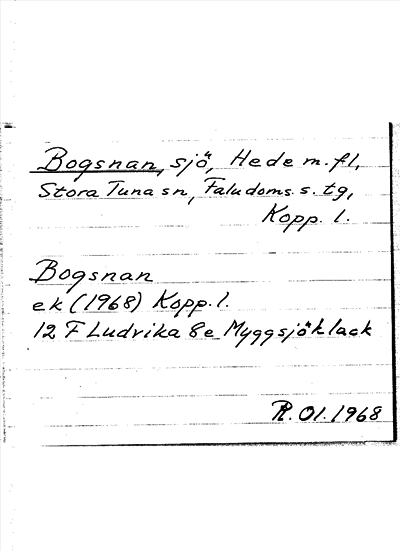 Bogsnan, sjö, Hede m.fl,
Stora Tuna sn, Falu doms. s. tg,
Kopp. l.
Bogsnan
ek (1968) Kopp. l.
12 F Ludvika 8e Myggsjöklack
R. Ol. 1968